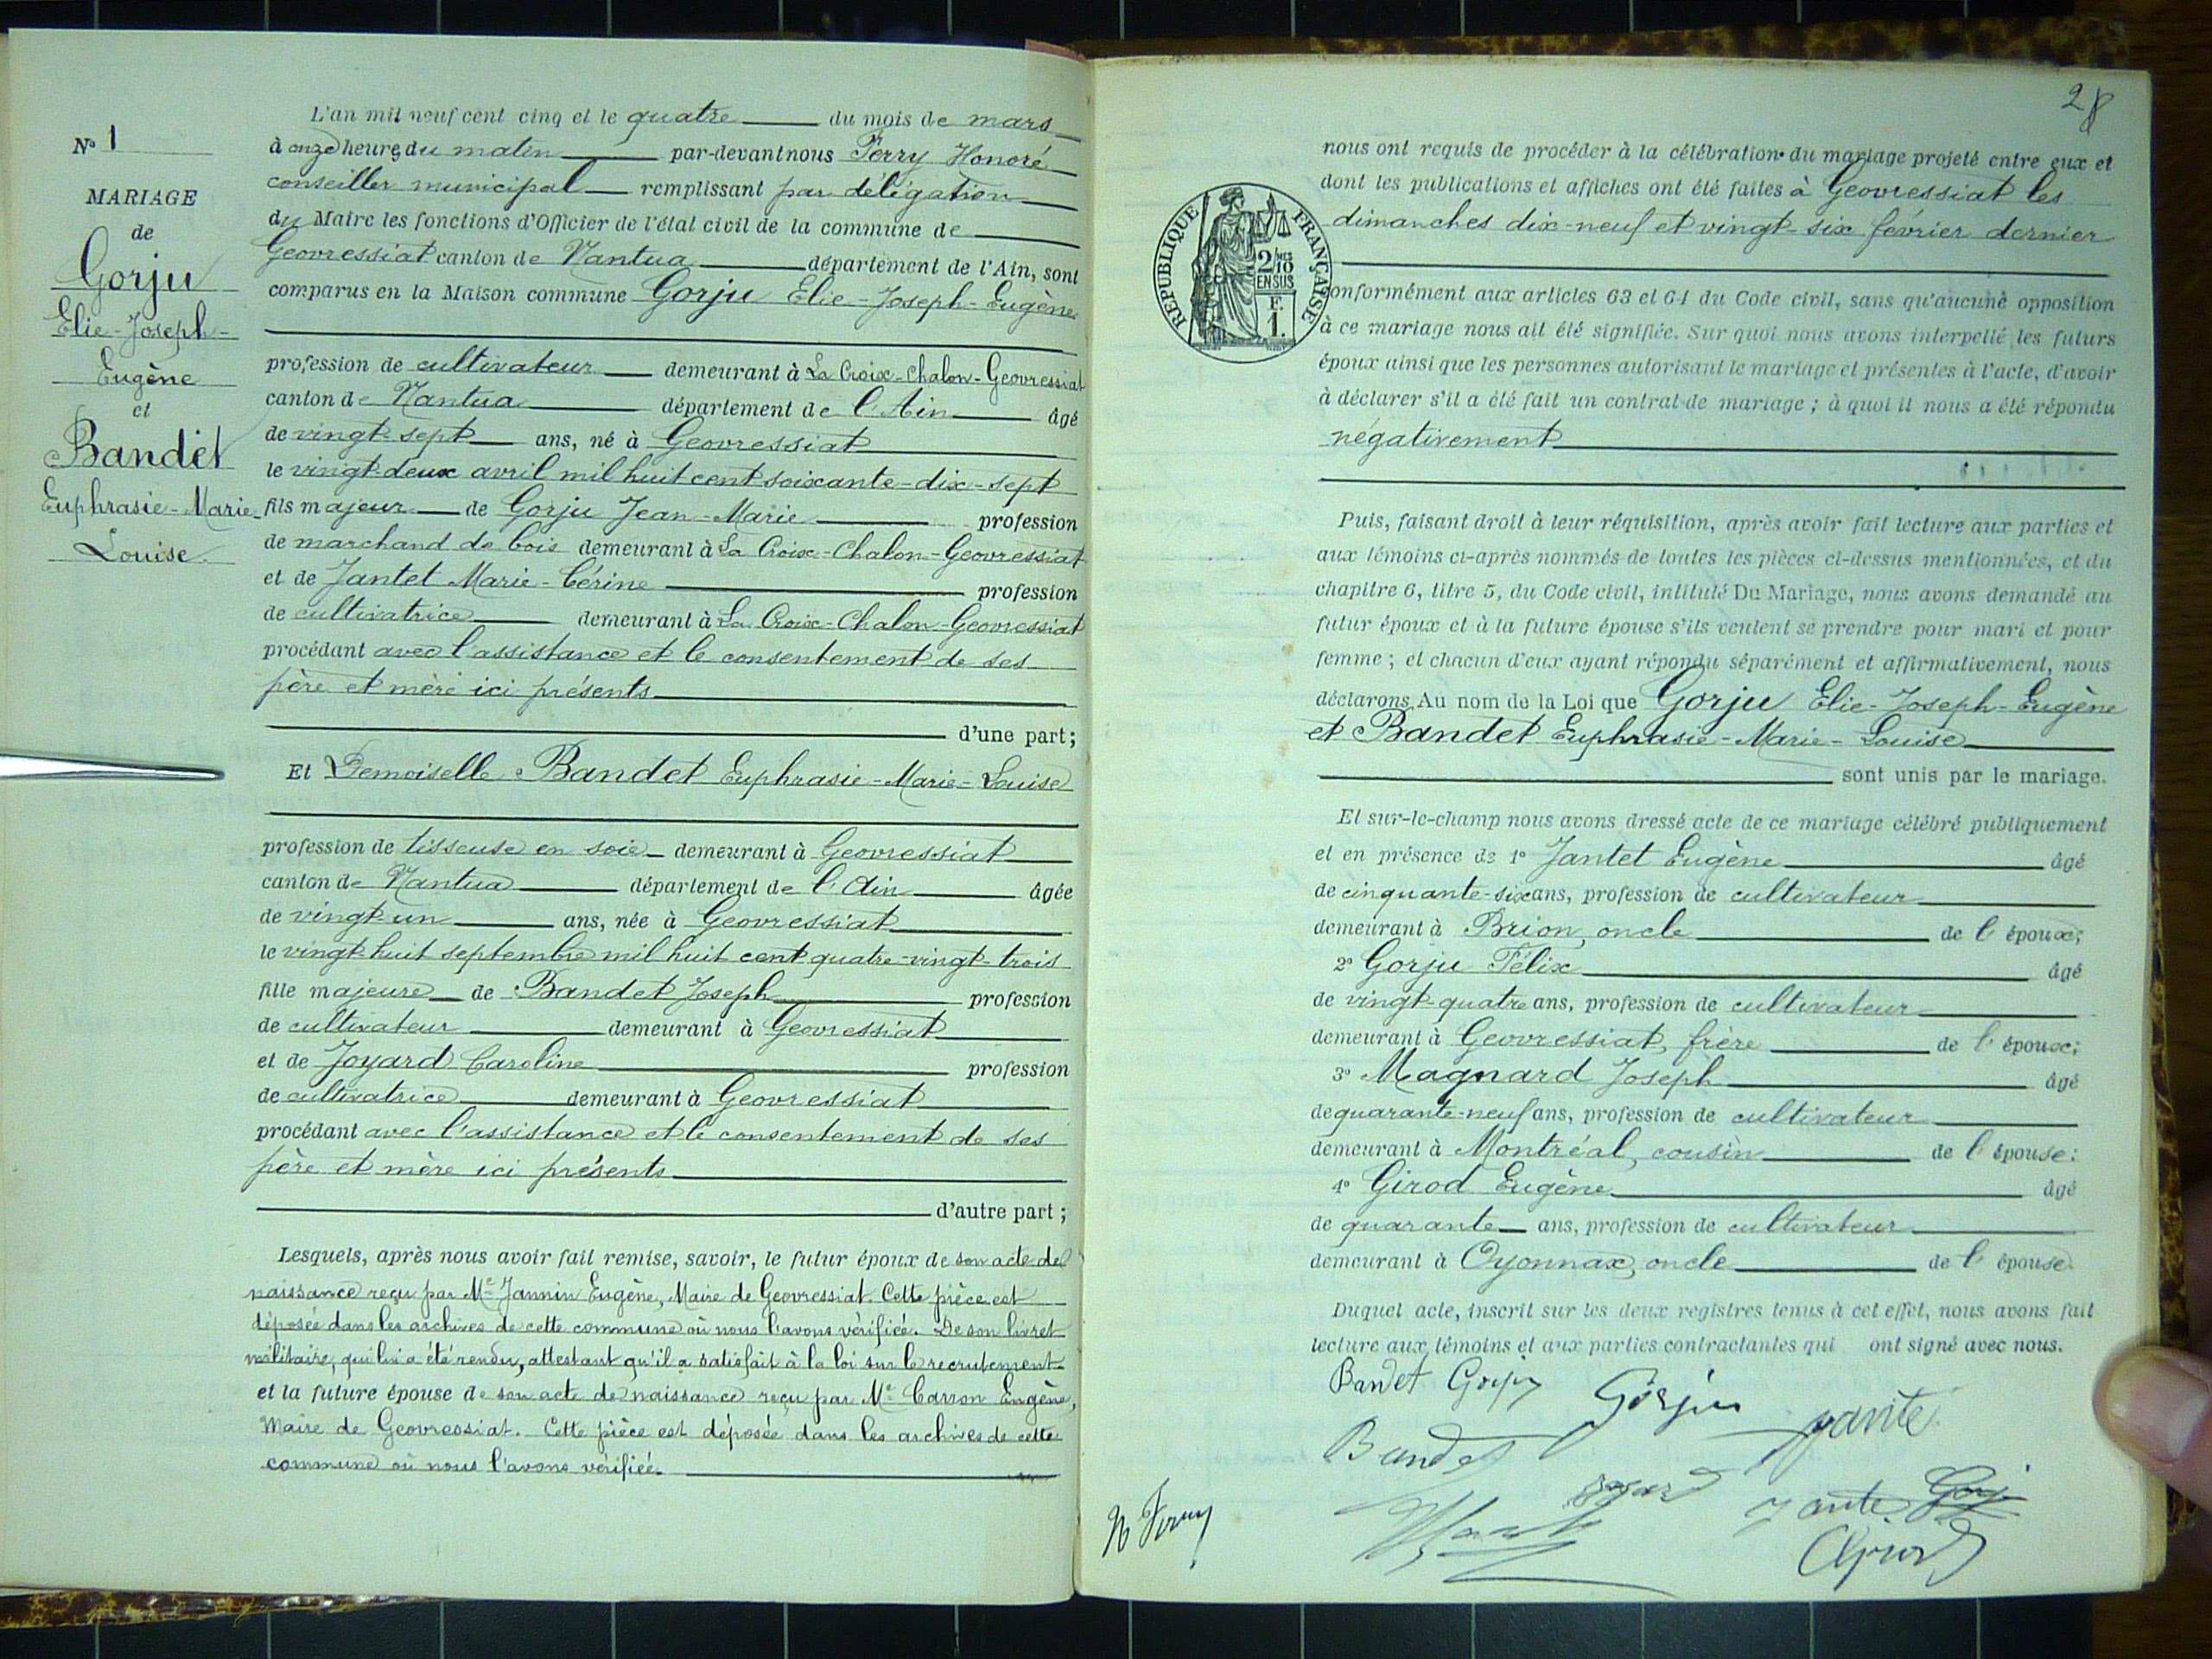 N° 1
MARIAGE
de
Gorju
Elie-Joseph-
Eugène
et
Bandet
Euphrasie-Marie-
Louise.
L'an mil neuf cent cinq et le quatre du mois de mars
à onze heures du matin par-devant nous Ferry Honoré
conseiller municipal remplissant par délégation
du Maire les fonctions d'Officier de l'état civil de la commune de
Geovressiat canton de Nantua département de l'Ain, sont
comparus en la Maison commune Gorju Elie-Joseph-Eugène
profession de cultivateur demeurant à La Croix-Chalon-Geovressiat
canton de Nantua département de l'Ain âgé
de vingt-sept ans, né à Geovressiat
le vingt-deux avril mil huit cent soixante-dix-sept
fils majeur de Gorju Jean-Marie profession
de marchand de bois demeurant à La Croix-Chalon-Geovressiat
et de Jantet Marie-Cérine profession
de cultivatrice demeurant à La Croix-Chalon-Geovressiat
procédant avec l'assistance et le consentement de ses
père et mère ici présents
d'une part;
Et Demoiselle Bandet Euphrasie-Marie-Louise
profession de tisseuse en soie demeurant à Geovressiat
canton de Nantua département de l'Ain âgée
de vingt-un ans, née à Geovressiat
le vingt-huit septembre mil huit cent quatre-vingt-trois
fille majeure de Bandet Joseph profession
de cultivateur demeurant à Geovressiat
et de Joyard Caroline profession
de cultivatrice demeurant à Geovressiat
procédant avec l'assistance et le consentement de ses
père et mère ici présents
d'autre part;
Lesquels, après nous avoir fait remise, savoir, le futur époux de son acte de
naissance reçu par Me Jannin Eugène, Maire de Geovressiat. Cette pièce est
déposée dans les archives de cette commune où nous l'avons vérifiée. De son livret
militaire, qui lui a été rendu, attestant qu'il a satisfait à la loi sur le recrutement
et la future épouse de son acte de naissance reçu par Me Carron Eugène,
Maire de Geovressiat. Cette pièce est déposée dans les archives de cette
commune où nous l'avons vérifiée.
28
RÉPUBLIQUE FRANÇAISE
2/10 MES
EN SUS
F.
1.
nous ont requis de procéder à la célébration du mariage projeté entre eux et
dont les publications et affiches ont été faites à Geovressiat les
dimanches dix-neuf et vingt-six février dernier
conformément aux articles 63 et 64 du Code civil, sans qu'aucune opposition
à ce mariage nous ait été signifiée. Sur quoi nous avons interpellé les futurs
époux ainsi que les personnes autorisant le mariage et présentes à l'acte, d'avoir
à déclarer s'il a été fait un contrat de mariage; à quoi il nous a été répondu
négativement
Puis, faisant droit à leur réquisition, après avoir fait lecture aux parties et
aux témoins ci-après nommés de toutes les pièces ci-dessus mentionnées, et du
chapitre 6, titre 5, du Code civil, intitulé Du Mariage, nous avons demandé au
futur époux et à la future épouse s'ils veulent se prendre pour mari et pour
femme; et chacun d'eux ayant répondu séparément et affirmativement, nous
déclarons Au nom de la Loi que Gorju Elie-Joseph-Eugène
et Bandet Euphrasie-Marie-Louise
sont unis par le mariage.
Et sur-le-champ nous avons dressé acte de ce mariage célébré publiquement
et en présence de 1° Jantet Eugène âgé
de cinquante-six ans, profession de cultivateur
demeurant à Brion, oncle de l'époux;
2° Gorju Félix âgé
de vingt-quatre ans, profession de cultivateur
demeurant à Geovressiat, frère de l'époux;
3° Magnard Joseph âgé
de quarante-neuf ans, profession de cultivateur
demeurant à Montréal, cousin de l'épouse;
4° Girod Eugène âgé
de quarante ans, profession de cultivateur
demeurant à Oyonnax, oncle de l'épouse.
Duquel acte, inscrit sur les deux registres tenus à cet effet, nous avons fait
lecture aux témoins et aux parties contractantes qui ont signé avec nous.
Bandet Gorju Gorju Jante
Bandet
Jante
H Ferry